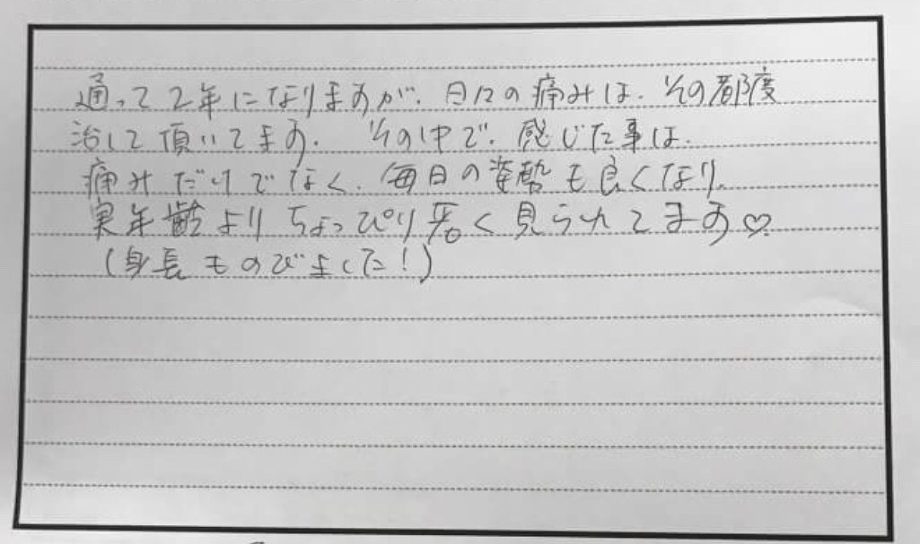 通って2年になりますが、日々の痛みは、その都度
治して頂いてます。その中で、感じた事は、
痛みだけでなく、毎日の姿勢も良くなり、
実年齢よりちょっぴり若く見られてます♡
(身長ものびました!)